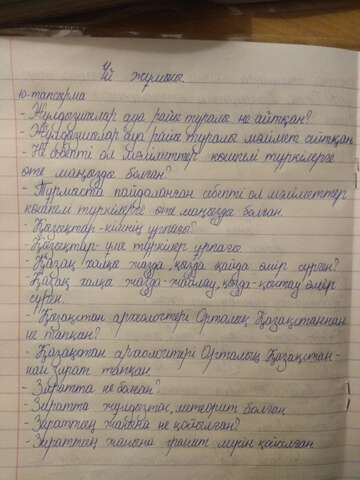 Үй жұмысы.
10-тапсырма
- Жұлдызшылар ауа райы туралы не айтқан?
- Жұлдызшылар ауа райы туралы мәлімет айтқан.
- Не себепті ол мәліметтер көшпелі түркілерге
өте маңызды болған?
- Тұрмыста пайдаланған себепті ол мәліметтер
көшпелі түркілерге өте маңызды болған.
- Қазақтар-кімнің ұрпағы?
- Қазақтар-ұлы түркілер ұрпағы.
- Қазақ халқы жазда, қызда қайда өмір сүрген?
Қазақ халқы жазда-жайлау, қызда-қыстау өмір
сүрген.
- Қазақстан археологтері Орталық Қазақстаннан
не тапқан?
- Қазақстан археологтері Орталық Қазақстан-
нан зират тапқан.
- Зиратта не болған?
- Зиратта жұлдызтас, метеорит болған
- Зираттың жанына не қойылған?
- Зираттың жанына гранит мүсін қойылған.